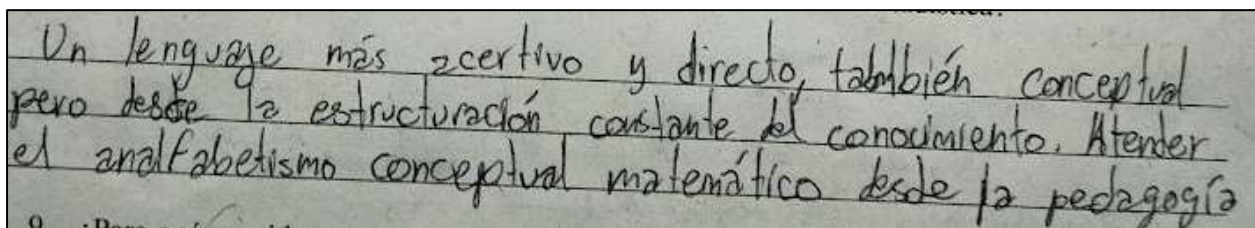 Un lenguaje más acertivo y directo, tabmbién conceptual
pero desde la estructuración constante del conocimiento. Atender
el analfabetismo conceptual matemático desde la pedagogía